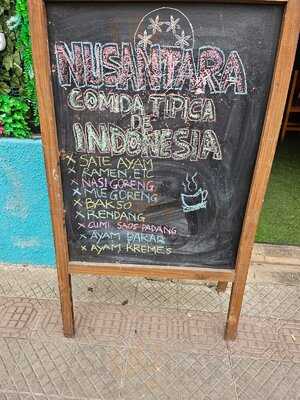 NUSANTARA
COMIDA TIPICA
DE
INDONESIA
x SATE AYAM
RAMEN, ETC
x NASI GORENG
x MIE GORENG
x BAKSO
x RENDANG
x CUMI SAOS PADANG
x AYAM BAKAR
x AYAM KREMES